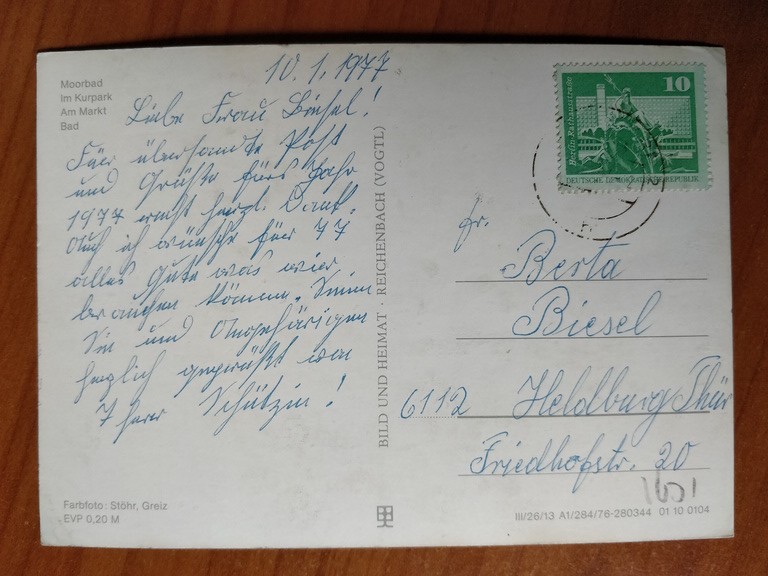 Moorbad
Im Kurpark
Am Markt
Bad
10.1.1977
Liebe Frau Biesel!
Für übersandte Post
und Grüße fürs Jahr
1977 recht herzl. Dank.
Auch ich wünsche für 77
alles Gute was wir
brauchen können. Seien
Sie und Angehörigen
herzlich gegrüßt von
Ihrer Schützin!
Farbfoto: Stöhr, Greiz
EVP 0,20 M
BILD UND HEIMAT · REICHENBACH (VOGTL)
10
Berlin-Rathausstraße
DEUTSCHE DEMOKRATISCHE REPUBLIK
Fr.
Berta
Biesel
6112 Heldburg Thür
Friedhofstr. 20
III/26/13 A1/284/76-280344 01 10 0104